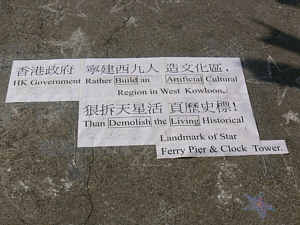 香港政府 寧建西九人 造文化區．
HK Government Rather Build an Artificial Cultural
Region in West Kowloon,
狠拆天星活 頁歷史標!
Than Demolish the Living Historical
Landmark of Star
Ferry Pier & Clock Tower.